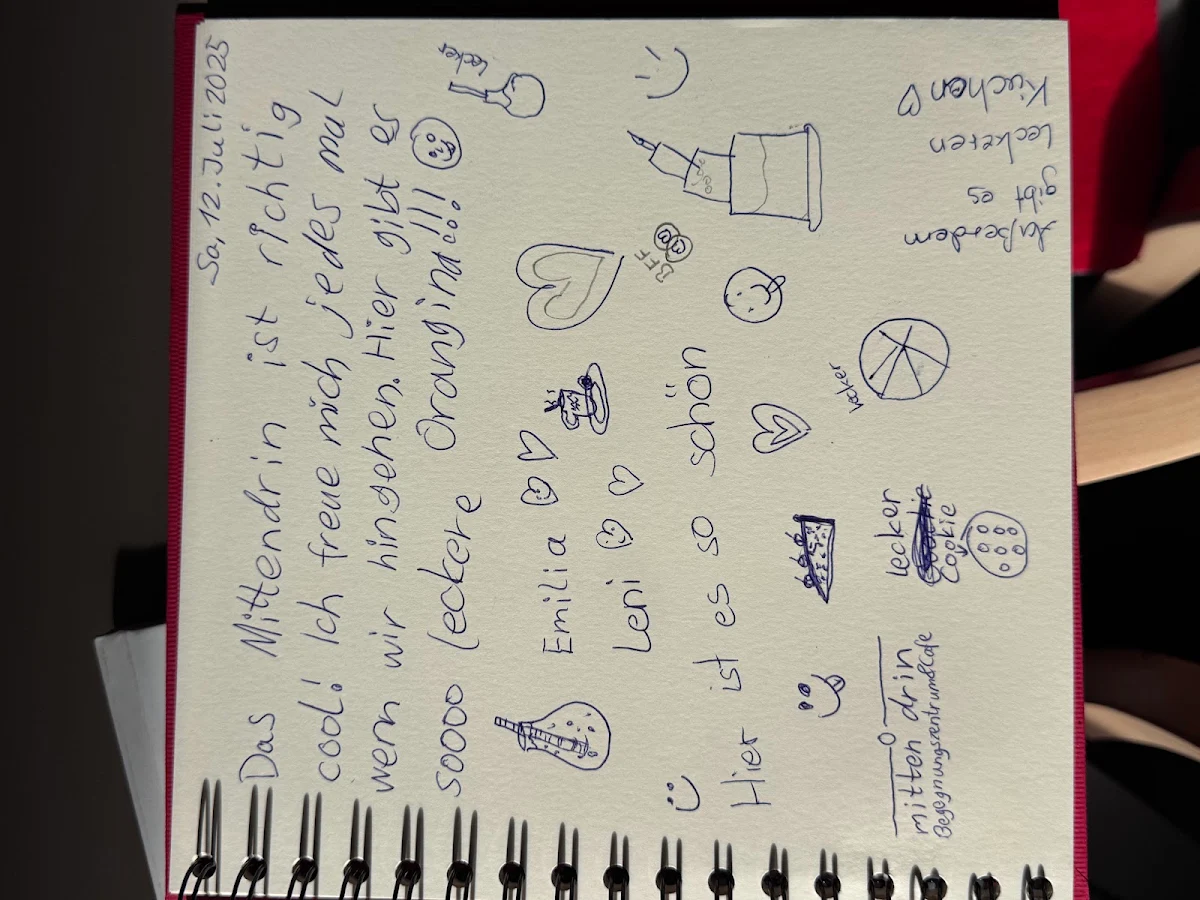 Sa, 12. Juli 2025
Das Mittendrin ist richtig
cool! Ich freue mich jedes mal
wenn wir hingehen. Hier gibt es
soooo leckere Orangina!!!
lecker
Emilia
Leni
BFF
Hier ist es so schön
lecker
lecker
Cookie
mitten drin
Begegnungszentrum&Cafe
Außerdem
gibt es
leckeren
Kuchen